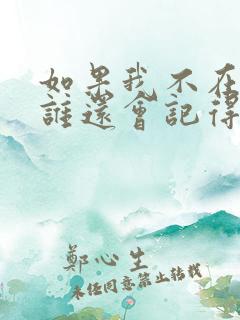 如果我不在
誰還會記得
鄭心生
未經同意禁止轉載